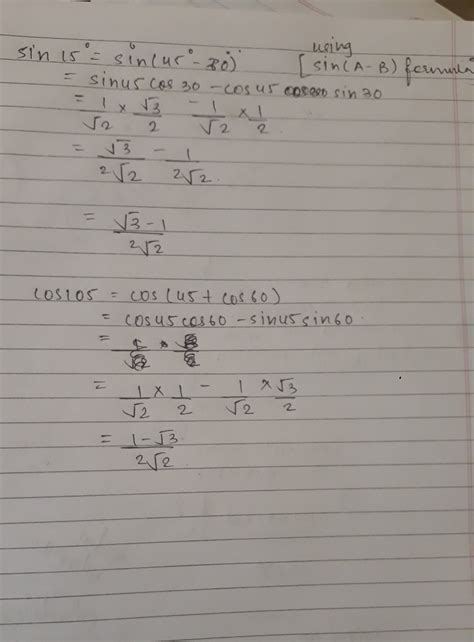 sin 15° = sin(45° - 30°) using [sin(A-B) formula
= sin45 cos 30 - cos 45 sin 30
= 1/√2 × √3/2 - 1/√2 × 1/2.
= √3/2√2 - 1/2√2.
= √3-1/2√2
cos105 = cos(45 + cos60)
= cos45cos60 - sin45sin60.
=
= 1/√2 × 1/2 - 1/√2 × √3/2
= 1-√3/2√2